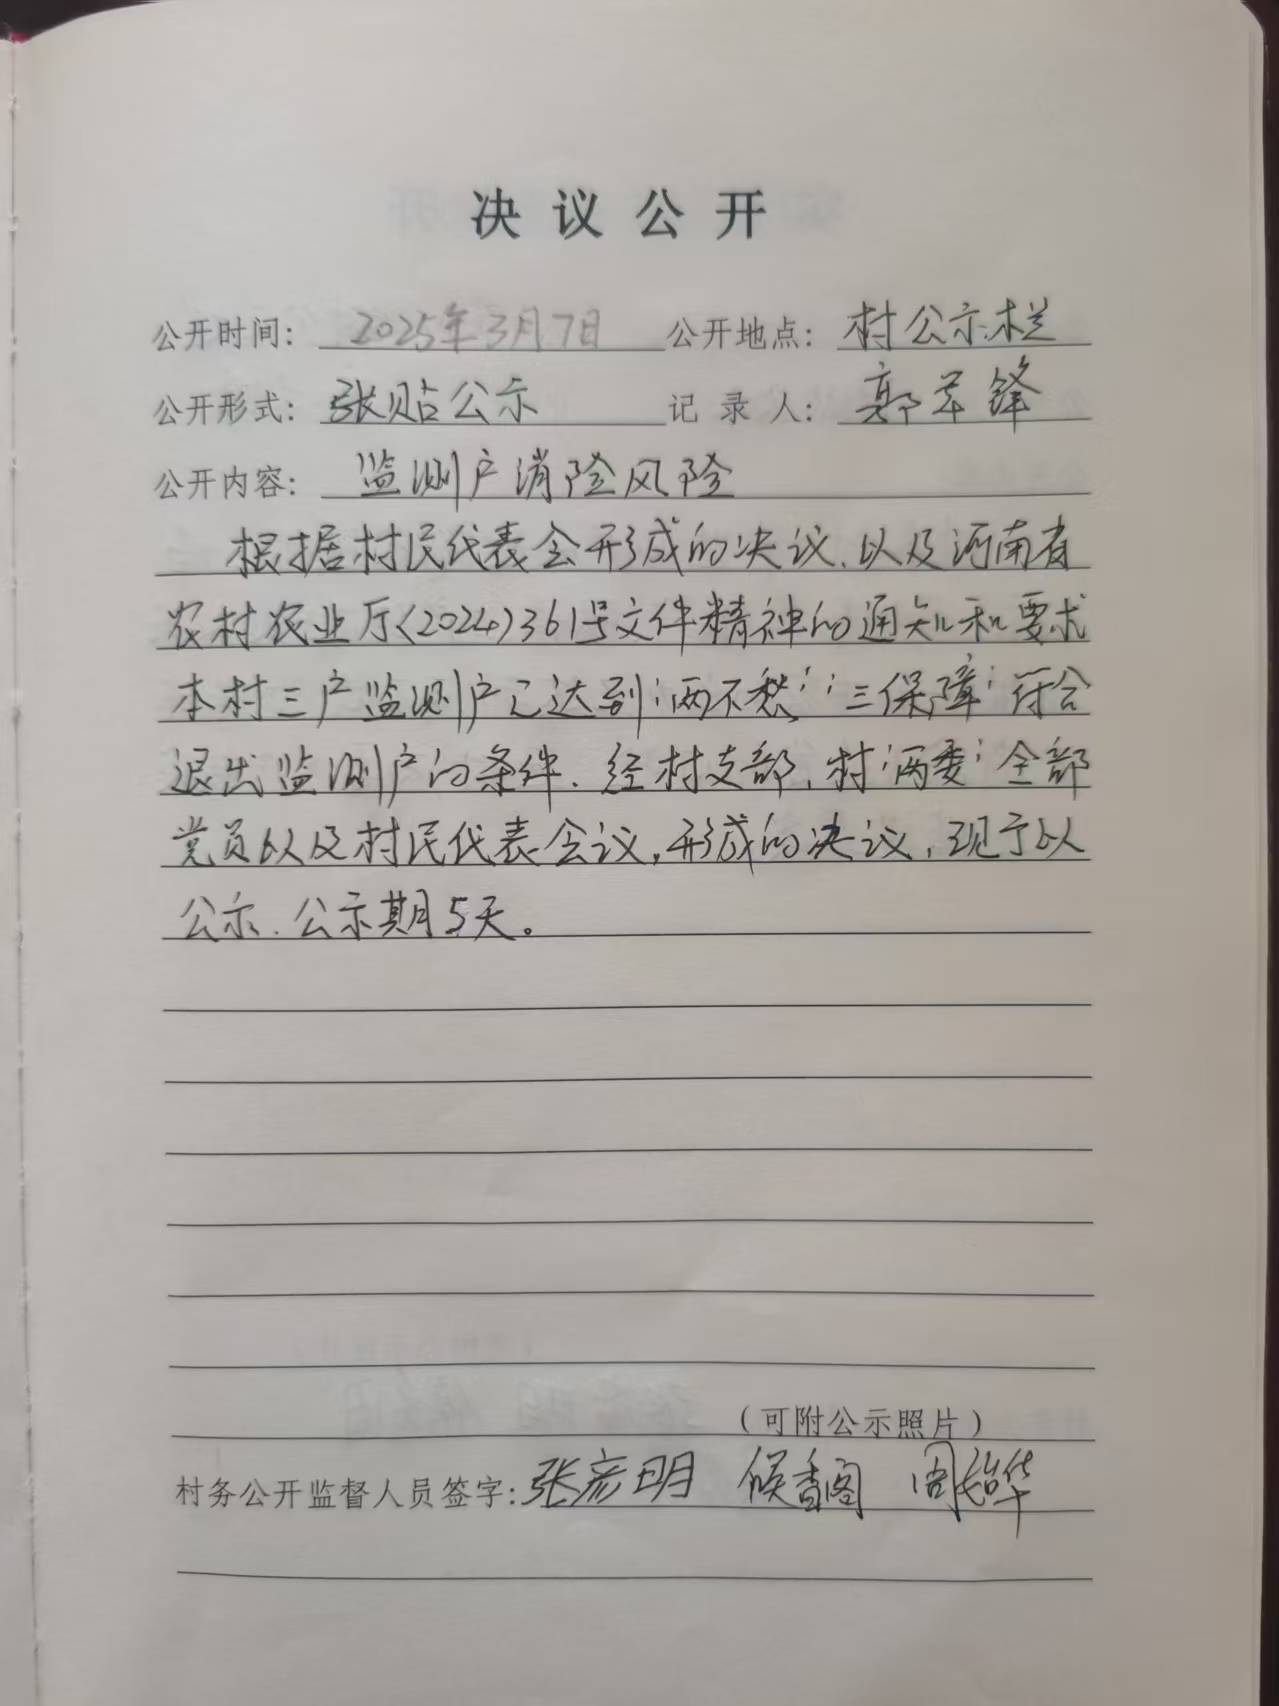 决议公开
公开时间: 2025年3月7日 公开地点: 村公示栏
公开形式: 张贴公示 记录人: 郭军锋
公开内容: 监测户消险风险
根据村民代表会形成的决议、以及河南省
农村农业厅〈2024〉361号文件精神的通知和要求
本村三户监测户已达到“两不愁”“三保障”符合
退出监测户的条件、经村支部、村“两委”全部
党员以及村民代表会议,形成的决议,现予以
公示、公示期5天。
(可附公示照片)
村务公开监督人员签字: 张彦明 候香阁 周